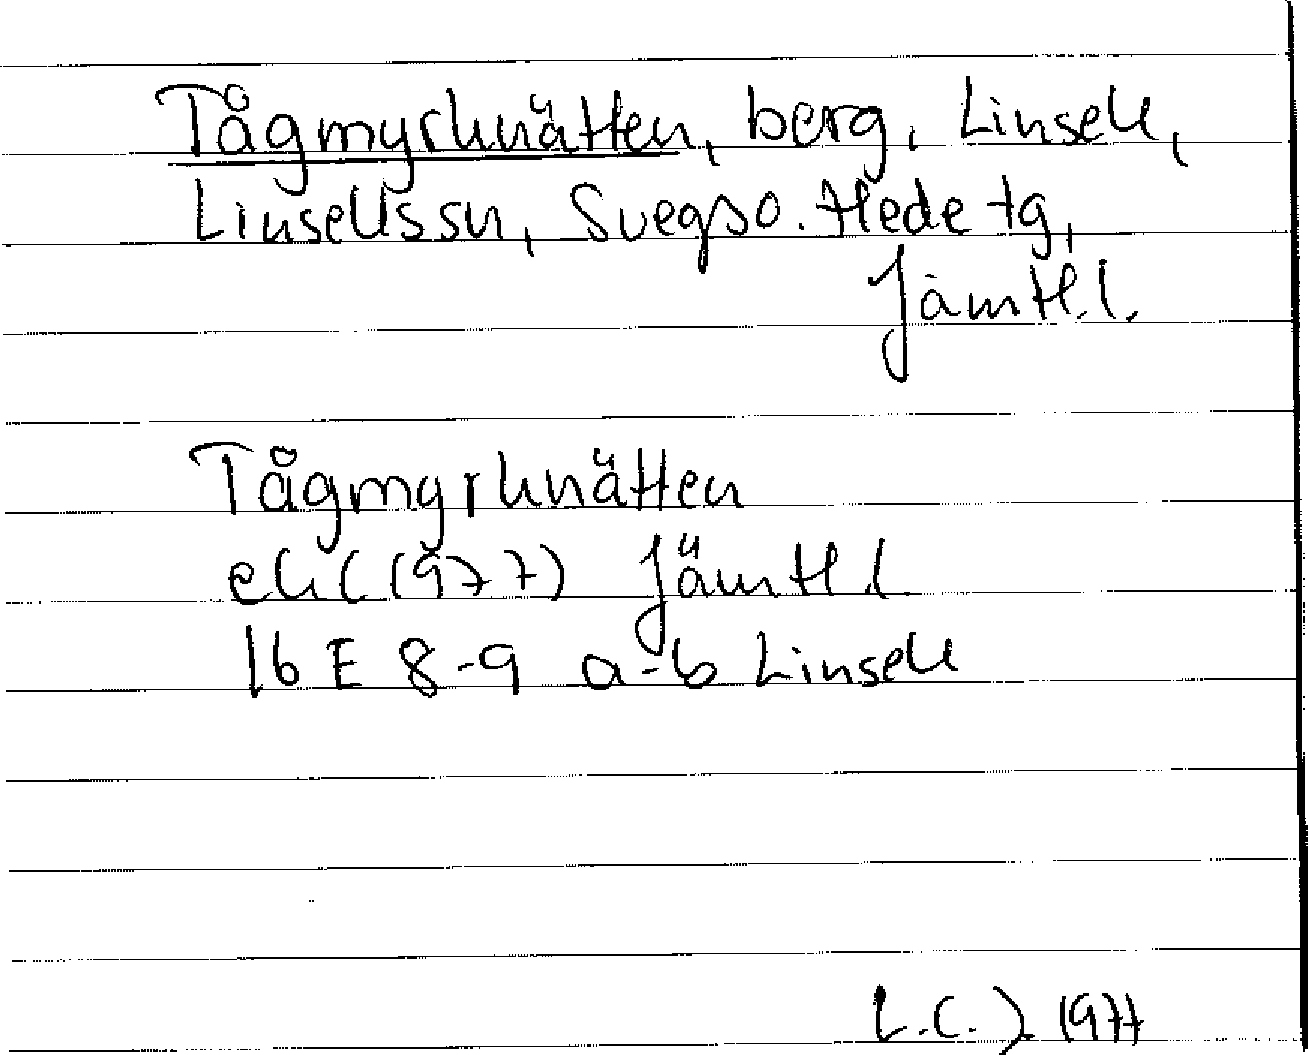 Tågmyrknätten, berg. Linsell,
Linsellssn, Svegs o. Hede tg,
Jämtl.l.
Tågmyrknätten
ek (1977) Jämtl.l
16 E 8-9 a-b Linsell
L.C.J. 1977